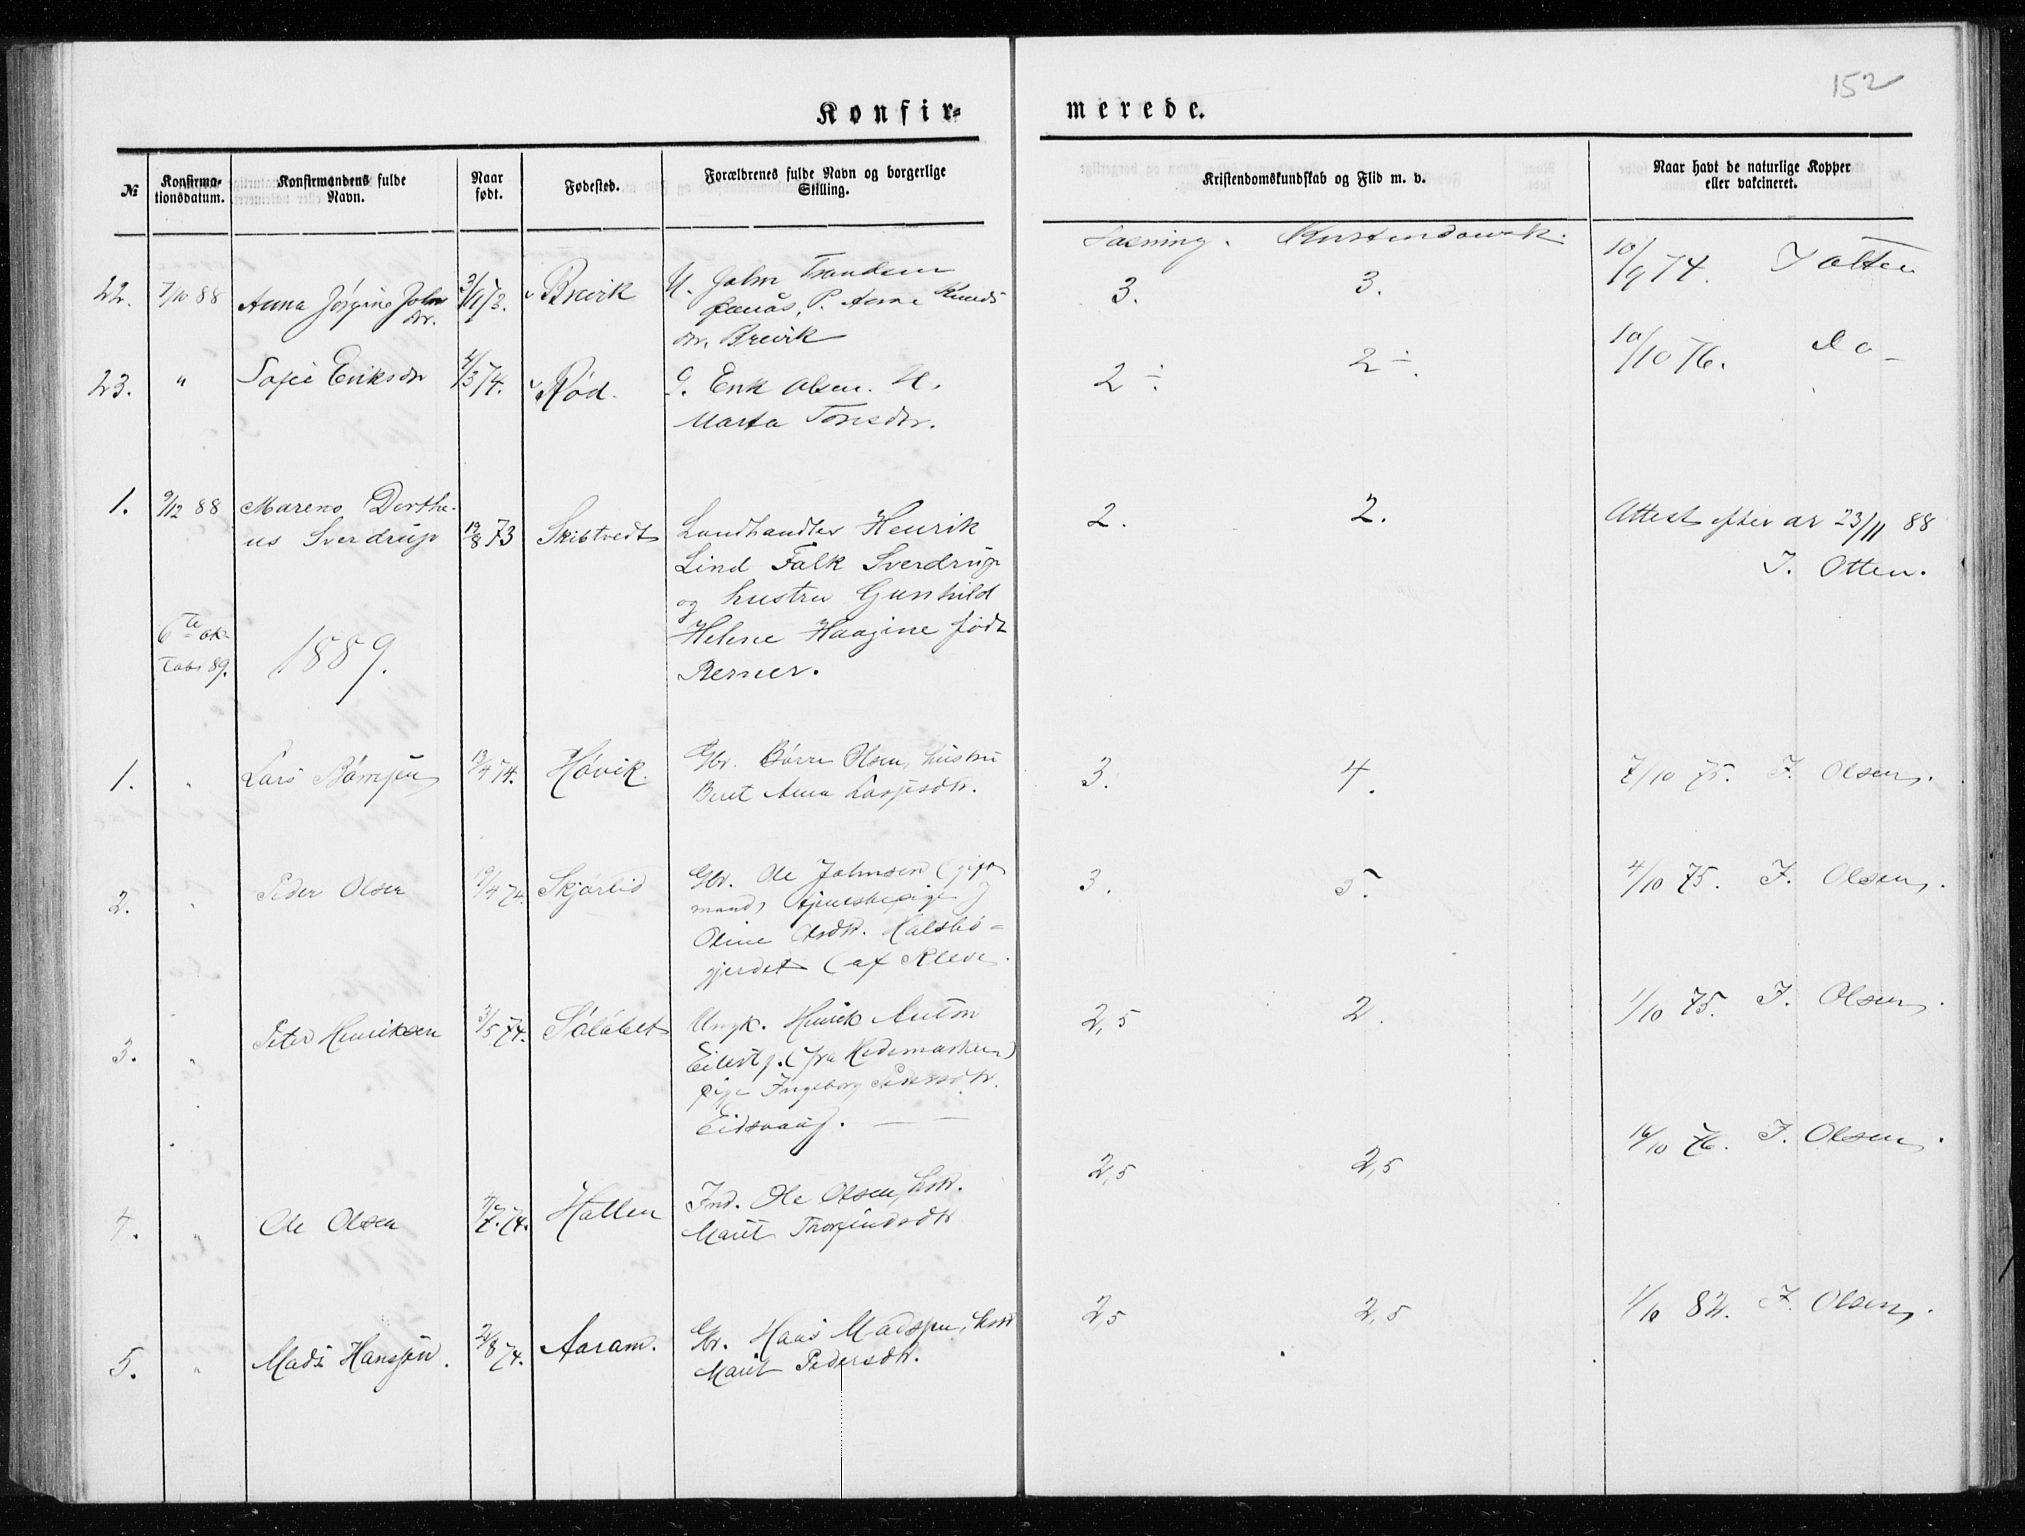 152
Konfir-
merede.
№
Konfirma-
tionsdatum.
Konfirmandens fulde
Navn.
Naar
født.
Fødested.
Forældrenes fulde Navn og borgerlige
Stilling.
Kristendomskundskab og Flid m. v.
Naar havt de naturlige Kopper
eller vakcineret.
Læsning. Kristendomsk.
22. 7/10 88 Anna Jørgine John
dr. Brevik U. John Trondsen
P. Anne Knuds
dr. Brevik
3. 3. 10/9 74.
23. " Sofie Eriksdr 4/3 74. Rød. G. Erik Olsen. H.
Marta Tomsdr.
2÷. 2÷. 10/10 76. do
1. 9/12 88 Mareno Dorthe-
us Sverdrup 19/8 73 Skibtvedt Landhandler Henrik
Lind Falk Sverdrup
og hustru Gunhild
Helene Haagine født
Berner.
2. 2. Attest efter ar 23/11 88
J. Otten.
6te ok-
tobr 89. 1889.
1. " Lars Børresen 13/4 74. Høvik. Gbr. Børre Olsen, hustru
Beret Anna
3. 4. 7/10 75. J. Olsen.
2. " Peder Olsen 19/4 74. Skjørlid Gbr. Ole Johnsen (gift
mand, tjenestepige
Oline Olsdtr. Halsbø-
gjerdet (af Kleve.
3. 5. 4/10 75. J. Olsen.
3. " Peter Henriksen 3/5 74. Ungk. Henrik Anton
(fra Hedemarken)
pige Ingeborg Pedersdtr.
Eidsvaag.
2,5 2. 1/10 75. J. Olsen.
4. " Ole Olsen 4/7. 74. Hallen Ind. Ole Olsen, hstr.
Marit Thorfindsdtr
2,5 2,5 16/10 76. J. Olsen.
5. " Mads Hanssen. 2/8 74. Aaram. Gbr. Hans Madssen, hstr
Marit Pedersdtr.
2,5 2,5 1/10 82. J. Olsen.